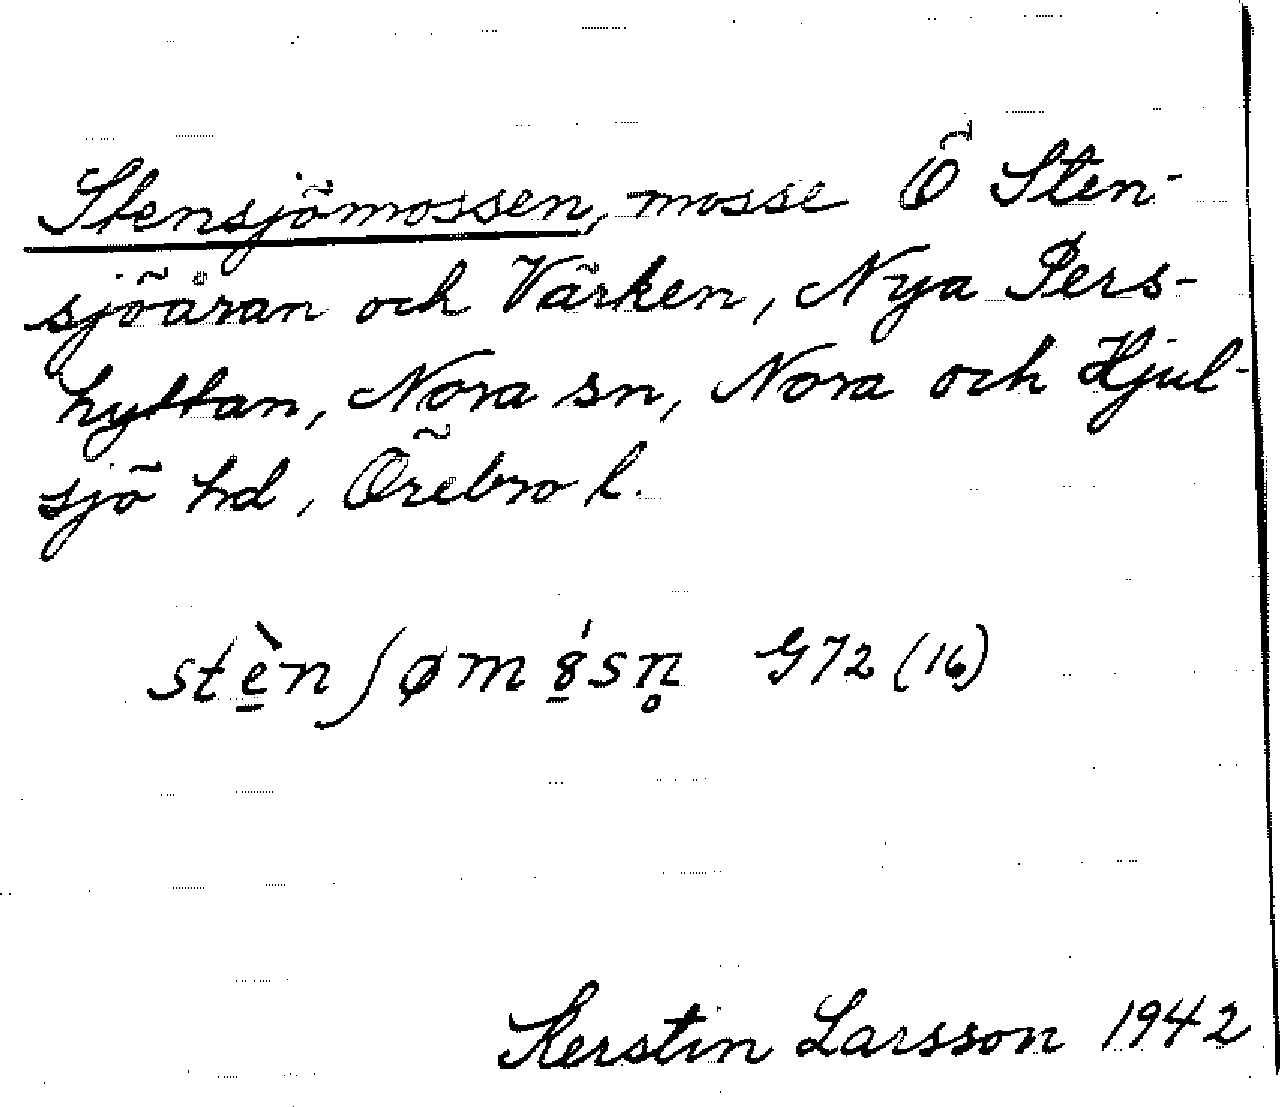 Stensjömossen, mosse Ö Sten-
sjöåran och Värken, Nya Pers-
hyttan, Nora sn, Nora och Hjul-
sjö hd, Örebro l.
stè̱nʃøm8̱́sn̥ G72 (16)
Kerstin Larsson 1942